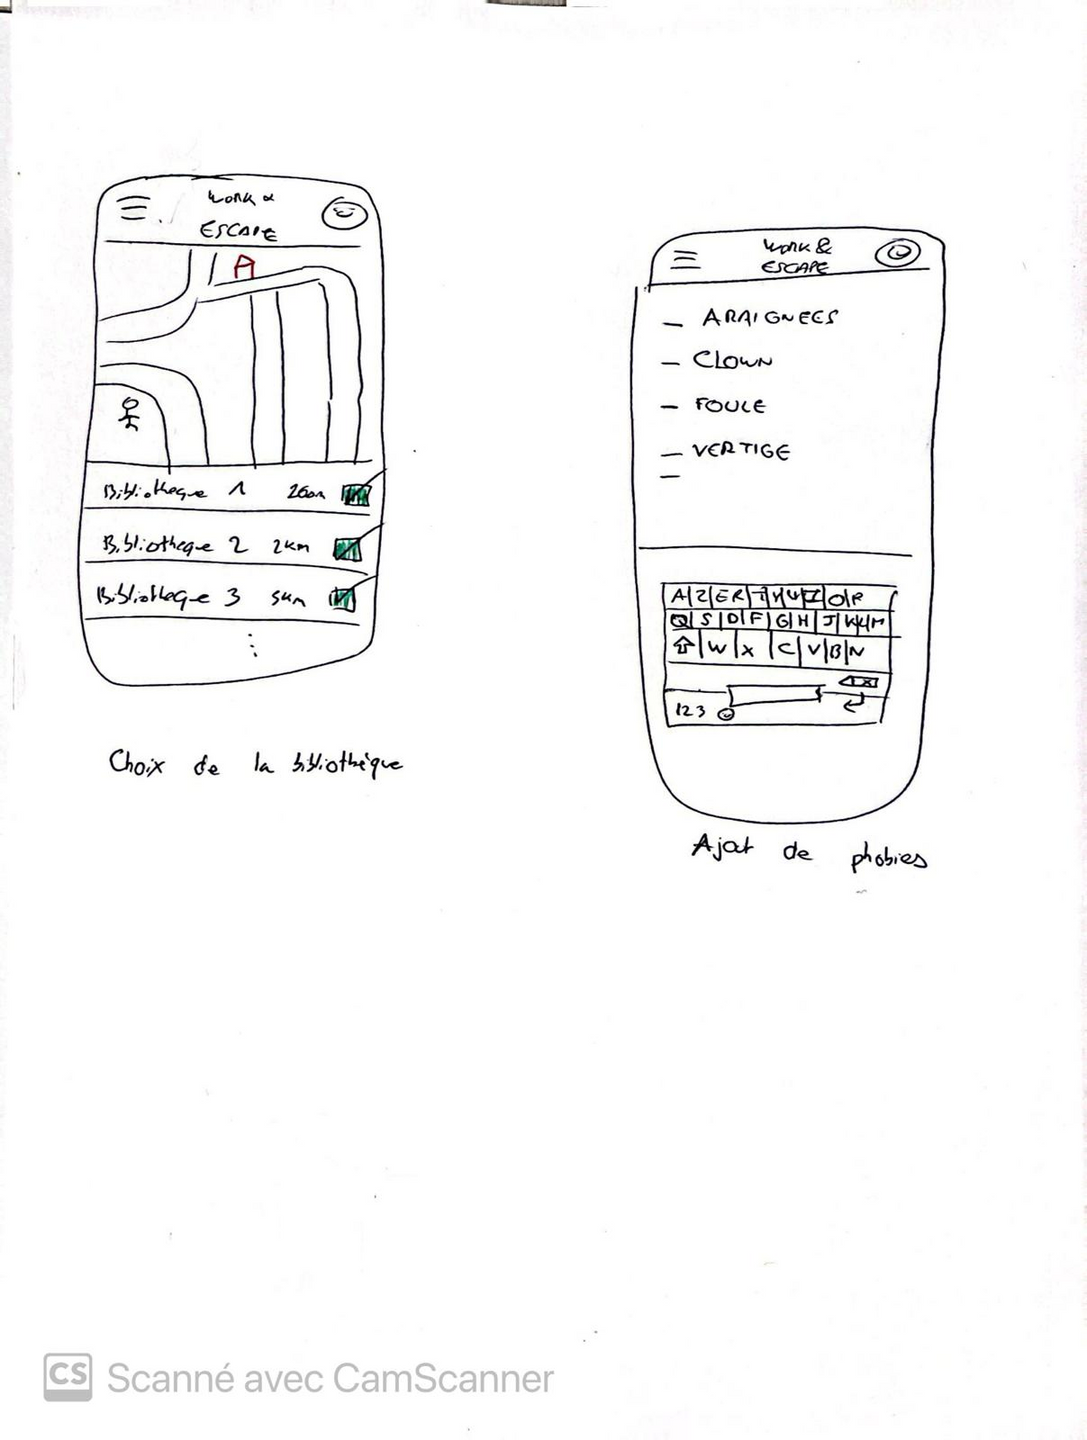 WORK &
ESCAPE
A
Bibliotheque 1
Bibliotheque 2 2km
Bibliotheque 3 5km
Choix de la bibliothèque
WORK &
ESCAPE
- ARAIGNEES
- CLOWN
- FOULE
- VERTIGE
-
A|Z|E|R|T|Y|U|I|O|P
Q|S|D|F|G|H|J|K|L|M
W|X|C|V|B|N
123
Ajout de phobies
CS Scanné avec CamScanner